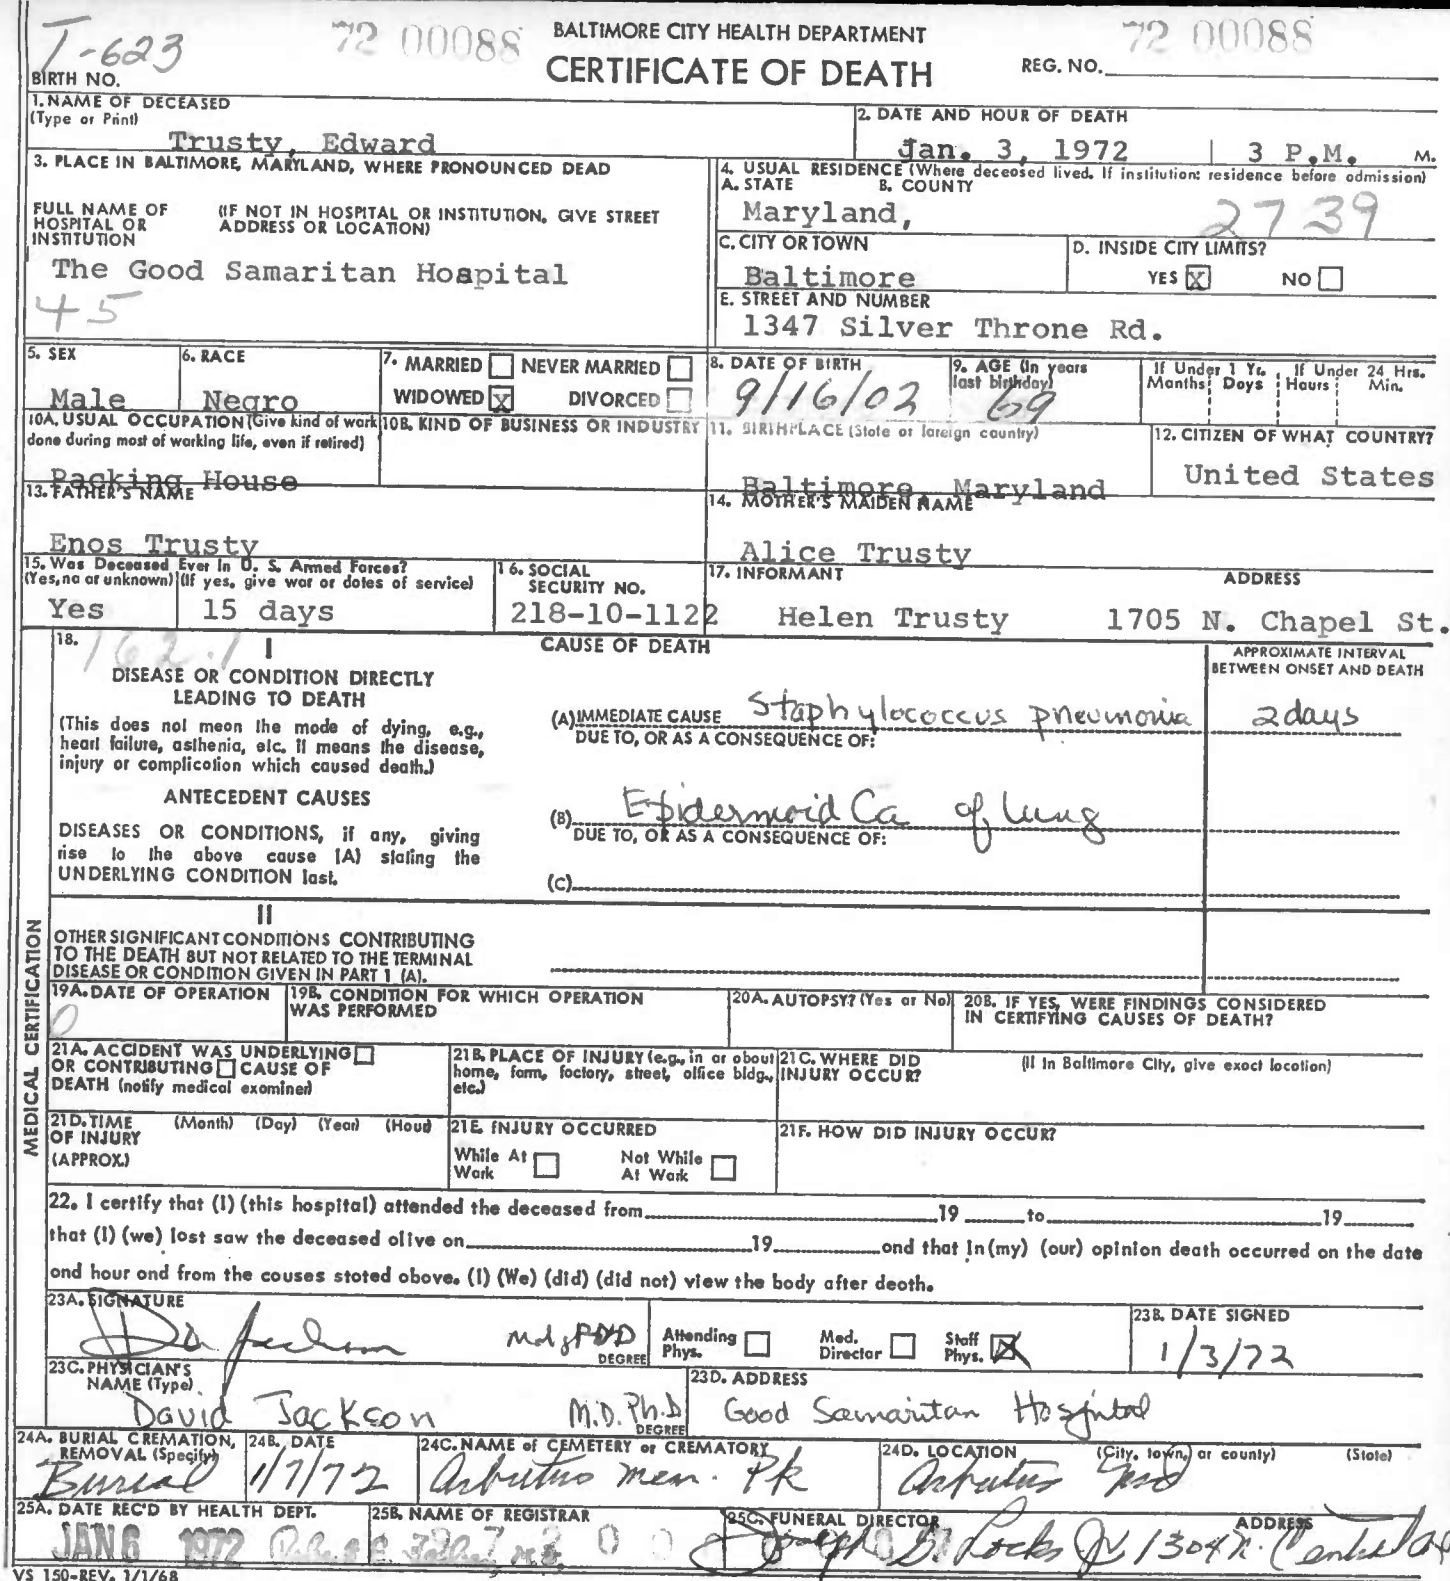 T-623 72 00088 BALTIMORE CITY HEALTH DEPARTMENT 72 00088
BIRTH NO. CERTIFICATE OF DEATH REG. NO.
1. NAME OF DECEASED
(Type or Print)
Trusty, Edward
2. DATE AND HOUR OF DEATH
Jan. 3, 1972 3 P.M. M.
3. PLACE IN BALTIMORE, MARYLAND, WHERE PRONOUNCED DEAD
FULL NAME OF HOSPITAL OR INSTITUTION
(IF NOT IN HOSPITAL OR INSTITUTION, GIVE STREET
ADDRESS OR LOCATION)
The Good Samaritan Hospital
45
4. USUAL RESIDENCE (Where deceased lived. If institution: residence before admission)
A. STATE B. COUNTY
Maryland, 2739
C. CITY OR TOWN
Baltimore
D. INSIDE CITY LIMITS?
YES X NO
E. STREET AND NUMBER
1347 Silver Throne Rd.
5. SEX
Male
6. RACE
Negro
7. MARRIED NEVER MARRIED
WIDOWED X DIVORCED
8. DATE OF BIRTH
9/16/02
9. AGE (In years
last birthday)
69
If Under 1 Yr. If Under 24 Hrs.
Months Days Hours Min.
10A. USUAL OCCUPATION (Give kind of work
done during most of working life, even if retired)
Packing House
10B. KIND OF BUSINESS OR INDUSTRY
11. BIRTHPLACE (State or foreign country)
Baltimore, Maryland
12. CITIZEN OF WHAT COUNTRY?
United States
13. FATHER'S NAME
Enos Trusty
14. MOTHER'S MAIDEN NAME
Alice Trusty
15. Was Deceased Ever In U. S. Armed Forces?
(Yes, no or unknown) (If yes, give war or dates of service)
Yes 15 days
16. SOCIAL
SECURITY NO.
218-10-1122
17. INFORMANT ADDRESS
Helen Trusty 1705 N. Chapel St.
MEDICAL CERTIFICATION
18. 162.1 I CAUSE OF DEATH
APPROXIMATE INTERVAL
BETWEEN ONSET AND DEATH
DISEASE OR CONDITION DIRECTLY
LEADING TO DEATH
(This does not mean the mode of dying, e.g.,
heart failure, asthenia, etc. It means the disease,
injury or complication which caused death.)
(A) IMMEDIATE CAUSE Staphylococcus pneumonia 2 days
DUE TO, OR AS A CONSEQUENCE OF:
ANTECEDENT CAUSES
DISEASES OR CONDITIONS, if any, giving
rise to the above cause (A) stating the
UNDERLYING CONDITION last.
(B) Epidermoid Ca of lung
DUE TO, OR AS A CONSEQUENCE OF:
(C)
II
OTHER SIGNIFICANT CONDITIONS CONTRIBUTING
TO THE DEATH BUT NOT RELATED TO THE TERMINAL
DISEASE OR CONDITION GIVEN IN PART 1 (A).
19A. DATE OF OPERATION
0
19B. CONDITION FOR WHICH OPERATION
WAS PERFORMED
20A. AUTOPSY? (Yes or No)
20B. IF YES, WERE FINDINGS CONSIDERED
IN CERTIFYING CAUSES OF DEATH?
21A. ACCIDENT WAS UNDERLYING
OR CONTRIBUTING CAUSE OF
DEATH (notify medical examiner)
21B. PLACE OF INJURY (e.g., in or about
home, farm, factory, street, office bldg.,
etc.)
21C. WHERE DID
INJURY OCCUR?
(If In Baltimore City, give exact location)
21D. TIME (Month) (Day) (Year) (Hour)
OF INJURY
(APPROX.)
21E. INJURY OCCURRED
While At
Work
Not While
At Work
21F. HOW DID INJURY OCCUR?
22. I certify that (I) (this hospital) attended the deceased from 19 to 19
that (I) (we) last saw the deceased alive on 19 and that in (my) (our) opinion death occurred on the date
and hour and from the causes stated above. (I) (We) (did) (did not) view the body after death.
23A. SIGNATURE
Jackson
DEGREE
Attending
Phys.
Med.
Director
Staff
Phys. X
23B. DATE SIGNED
1/3/72
23C. PHYSICIAN'S
NAME (Type)
David Jackson M.D. Ph.D
DEGREE
23D. ADDRESS
Good Samaritan Hospital
24A. BURIAL CREMATION,
REMOVAL (Specify)
Burial
24B. DATE
1/7/72
24C. NAME of CEMETERY or CREMATORY
Arbutus Mem. Pk
24D. LOCATION (City, town, or county) (State)
Arbutus Md
25A. DATE REC'D BY HEALTH DEPT.
JAN 6 1972
25B. NAME OF REGISTRAR
25C. FUNERAL DIRECTOR ADDRESS
Joseph G. Locks Jr 1304 N. Central Ave
VS 150-REV. 1/1/68